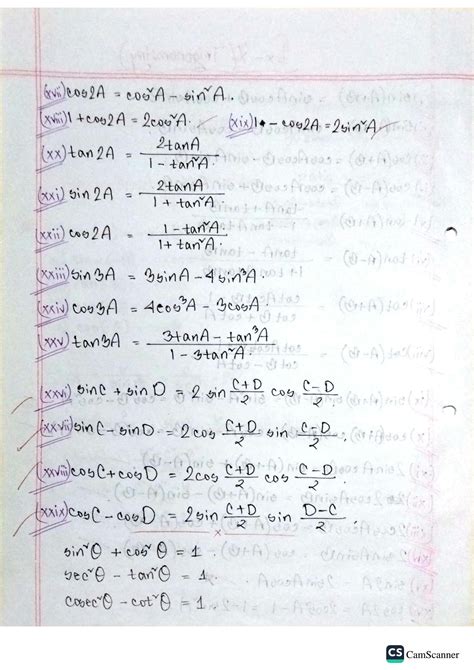 (xvii) cos2A = cos²A - sin²A.
(xviii) 1 + cos2A = 2cos²A. (xix) 1 - cos2A = 2sin²A
(xx) tan2A = 2tanA / 1 - tan²A.
(xxi) sin2A = 2tanA / 1 + tan²A
(xxii) cos2A = 1 - tan²A / 1 + tan²A.
(xxiii) sin3A = 3sinA - 4sin³A.
(xxiv) cos3A = 4cos³A - 3cosA.
(xxv) tan3A = 3tanA - tan³A / 1 - 3tan²A.
(xxvi) sinC + sinD = 2 sin C+D/2 cos C-D/2
(xxvii) sinC - sinD = 2cos C+D/2 sin C-D/2.
(xxviii) cosC + cosD = 2cos C+D/2 cos C-D/2.
(xxix) cosC - cosD = 2sin C+D/2 sin D-C/2.
sin²θ + cos²θ = 1.
sec²θ - tan²θ = 1
cosec²θ - cot²θ = 1
CS CamScanner